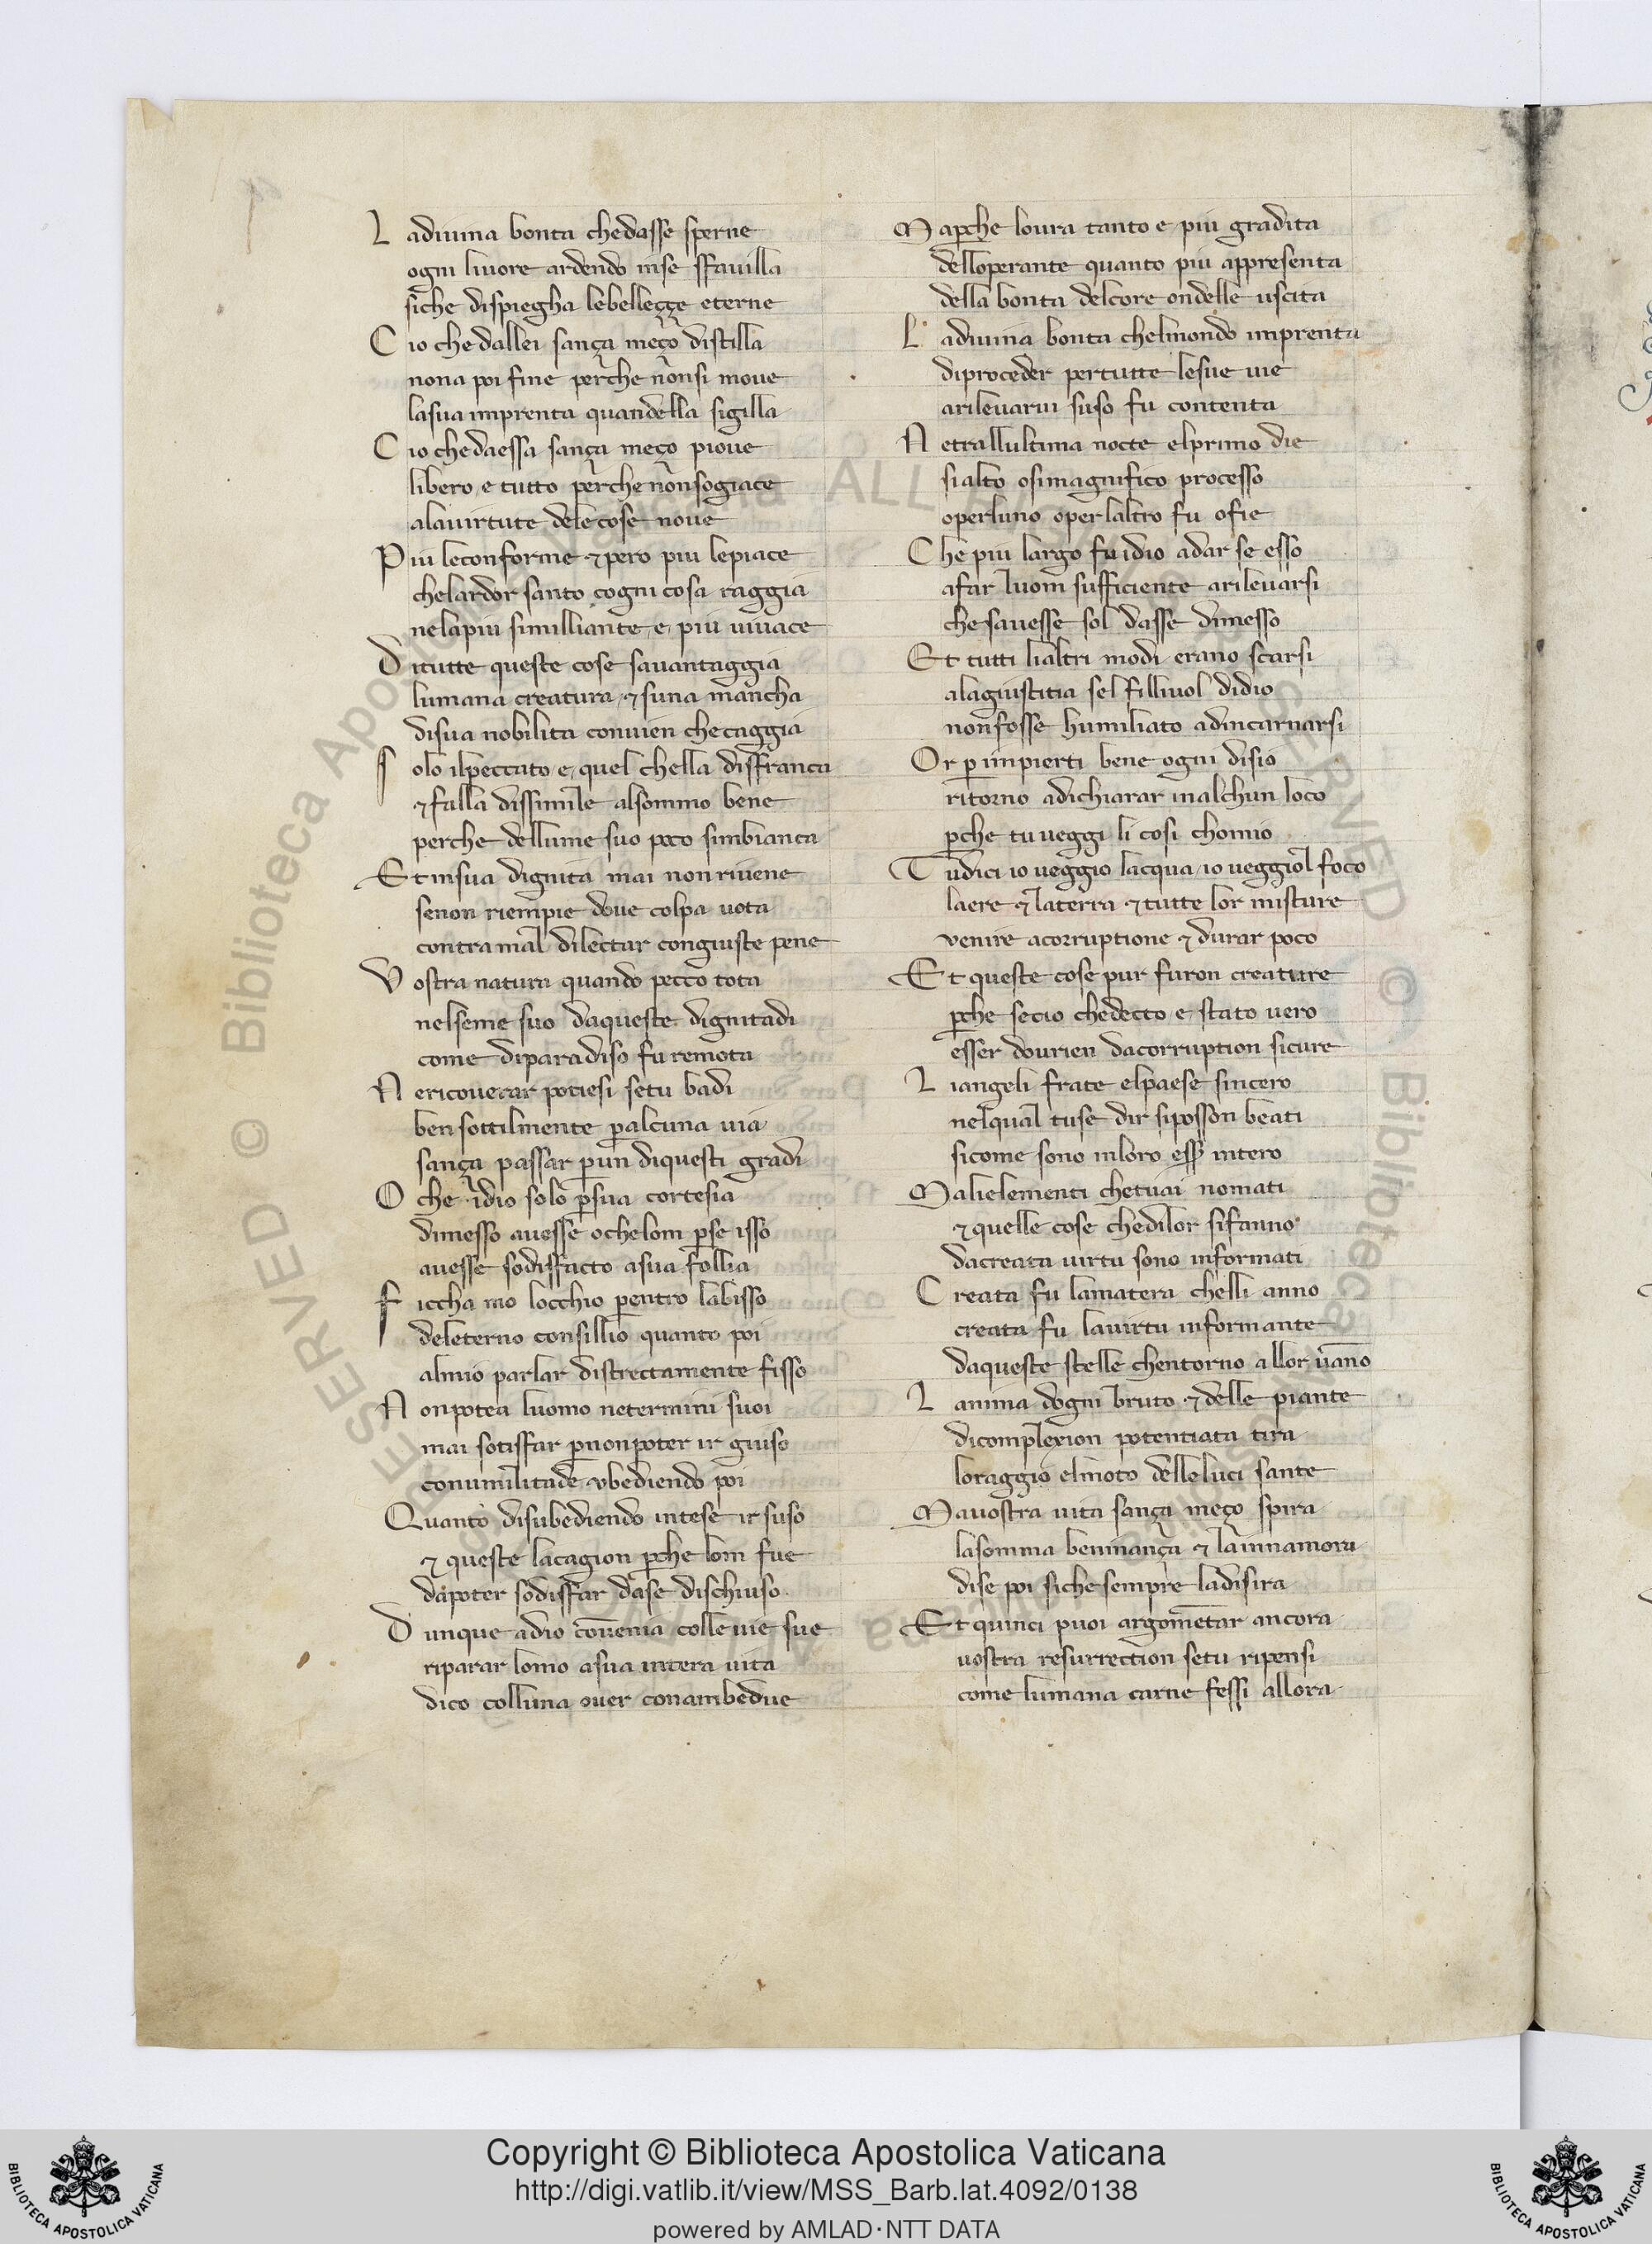 L adiuina bonta chedasse sperne
ogni liuore ardendo inse sfauilla
siche dispiegha lebelleççe eterne
C io chedallei sança meço distilla
nona poi fine perche nonsi moue
lasua imprenta quandella sigilla
C io chedaessa sança meço pioue
libero e tutto perche nonsogiace
alauirtute delecose noue
P iu leconforme ⁊ pero piu lepiace
chelardor santo cogni cosa raggia
nelapiu simiglliante e piu uiuace
D itutte queste cose sauantaggia
lumana creatura ⁊ suna mancha
disua nobilita conuien checaggia
S olo ilpeccato e quel chella disfranca
⁊ falla dissimile alsommo bene
perche dellume suo poco simbianca
Et insua dignita mai non riuene
senon riempie doue colpa uota
contramal dilectar congiuste pene
V ostra natura quando pecco tota
nelseme suo daqueste dignitadi
come diparadiso fu remota
N ericouerar potiesi setu badi
ben sottilmente palcuna uia
sança passar pun diquesti gradi
O che idio solo psua cortesia
dimesso auesse ochelom pse isso
auesse sodisfacto asua follia
F iccha mo locchio pentro labisso
deleterno consillio quanto poi
almio parlar distrectamente fisso
N onpotea luomo netermini suoi
mai sotisfar pnonpoter ir giuso
conumilitade vbediendo poi
Quanto disubediendo intese ir suso
⁊ queste lacagion pche lom fue
dapoter sodisfar dase dischiuso
D unque adio conuenia colle uie sue
riparar lomo asua intera uita
dico colluna ouer conambedue
M apche loura tanto e piu gradita
delloperante quanto piu appresenta
della bonta delcore ondelle uscita
L adiuina bonta chelmondo imprenta
diproceder pertutte lesue uie
arileuarui suso fu contenta
N etrallultima nocte elprimo die
sialto osimagnifico processo
operluno operlaltro fu ofie
Che piu largo fu idio adar se esso
afar luom sufficiente arileuarsi
chesauesse sol dasse dimesso
Et tutti lialtri modi erano scarsi
alagiustitia sel filliuol didio
nonfosse humiliato adincarnarsi
Or p impierti bene ogni disio
ritorno adichiarar inalchun loco
pche tu ueggi li cosi chomio
Tu dici io ueggio lacqua io ueggiol foco
laere ⁊ laterra ⁊ tutte lor misture
venire acorruptione ⁊ durar poco
Et queste cose pur furon creature
pche secio chedecto e stato uero
esser dourien dacorruption sicure
L iangeli frate elpaese sincero
nelqual tuse dir siposson beati
sicome sono inloro esse intero
M alielementi chetuai nomati
⁊ quelle cose chedilor sifanno
dacreata uirtu sono informati
C reata fu lamatera chelli anno
creata fu lauirtu informante
daqueste stelle chentorno allor uanno
L anima dogni bruto ⁊ delle piante
dicomplexion potentiata tira
loraggio elmoto delleluci sante
M auostra uita sança meço spira
lasomma beninança ⁊ lainnamora
dise poi sichesempre ladisira
Et quinci puoi argomentar ancora
uostra resurrection setu ripensi
come lumana carne fessi allora
Copyright © Biblioteca Apostolica Vaticana
http://digi.vatlib.it/view/MSS_Barb.lat.4092/0138
powered by AMLAD·NTT DATA
BIBLIOTECA APOSTOLICA VATICANA
BIBLIOTECA APOSTOLICA VATICANA